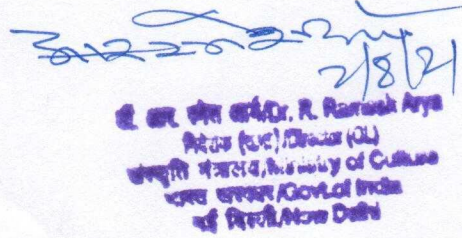 2/8/21
डॉ. आर. रमेश आर्य/Dr. R. Ramesh Arya
निदेशक (रा.भा.)/Director (OL)
संस्कृति मंत्रालय/Ministry of Culture
भारत सरकार/Govt. of India
नई दिल्ली/New Delhi